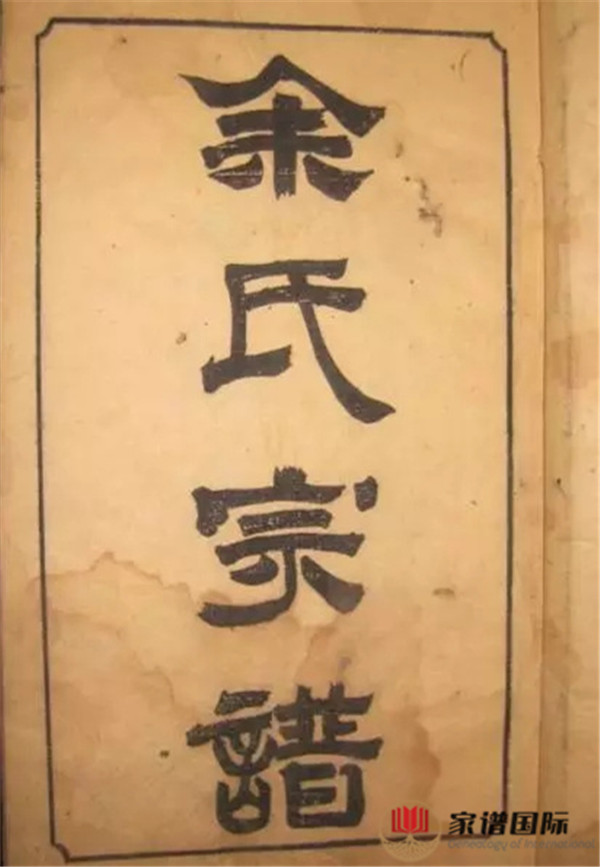 余氏宗譜
家谱国际
Genealogy of International